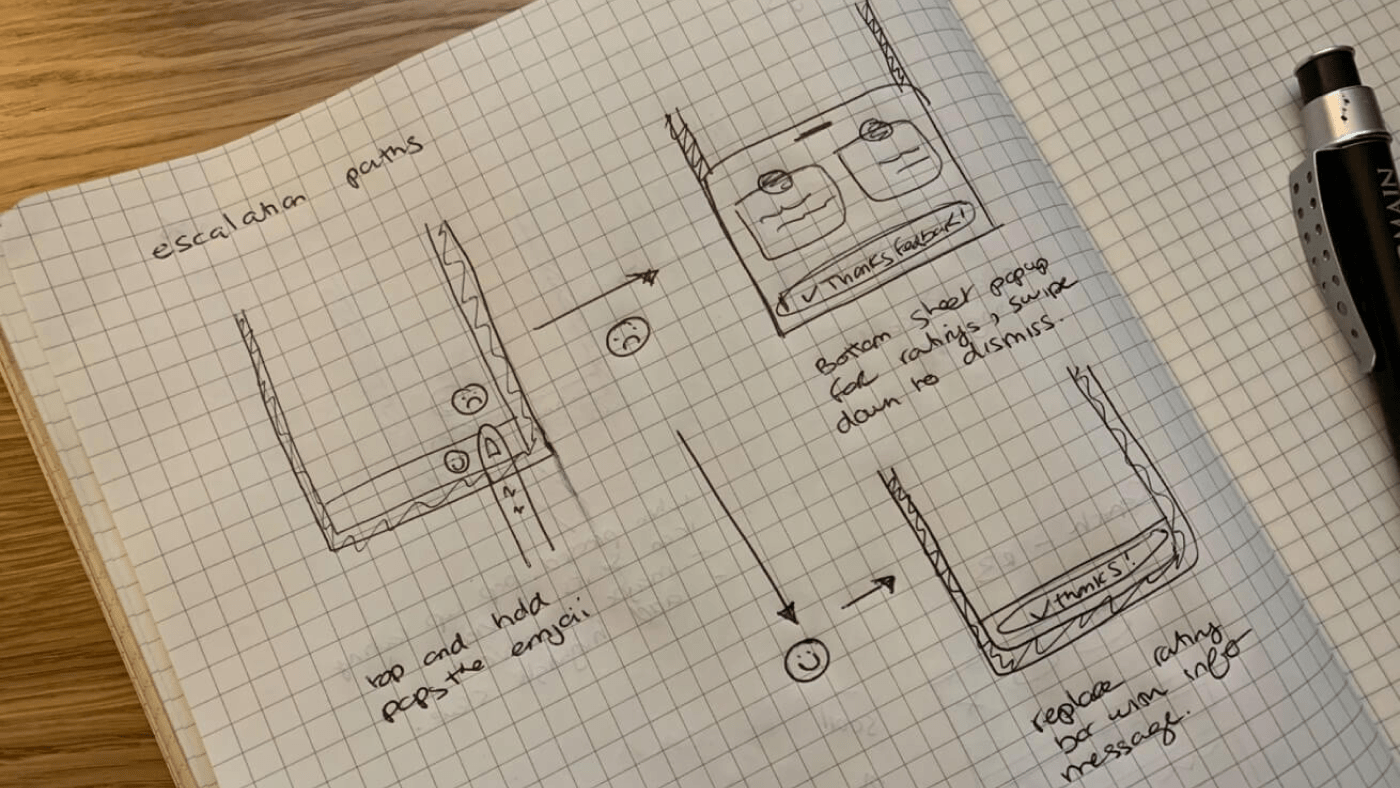 escalation paths
✓ Thanks Feedback!
Bottom sheet popup
for ratings, swipe
down to dismiss.
tap and hold
pops the emjoii
✓ thanks!
replace rating
bar with info
message.